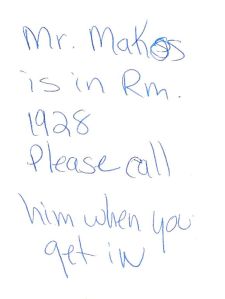 Mr. Makos
is in Rm.
1928
Please call
him when you
get in